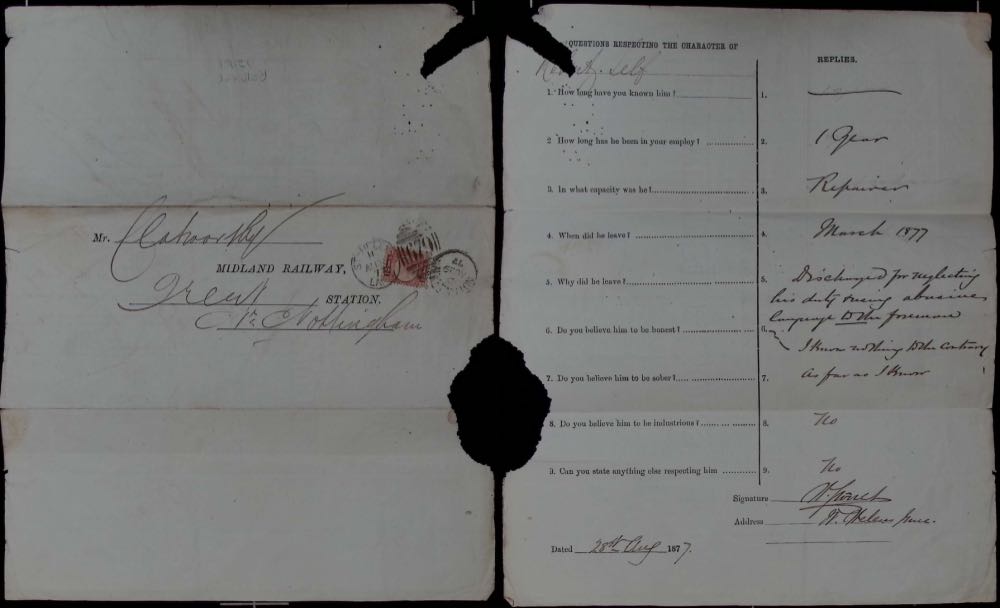 Mr.
MIDLAND RAILWAY,
Trent STATION.
Nr Nottingham
QUESTIONS RESPECTING THE CHARACTER OF
REPLIES.
Self
1. How long have you known him? 1.
2 How long has he been in your employ? 2. 1 Year
3. In what capacity was he? 3. Repairer
4. When did he leave? 4. March 1877
5. Why did he leave? 5. Discharged for neglecting
his duty & using abusive
language to the foreman
6. Do you believe him to be honest? 6. I know nothing to the contrary
7. Do you believe him to be sober? 7. As far as I know
8. Do you believe him to be industrious? 8. No
9. Can you state anything else respecting him 9. No
Signature
Address St. Helens Junc.
Dated 28th Aug 1877.